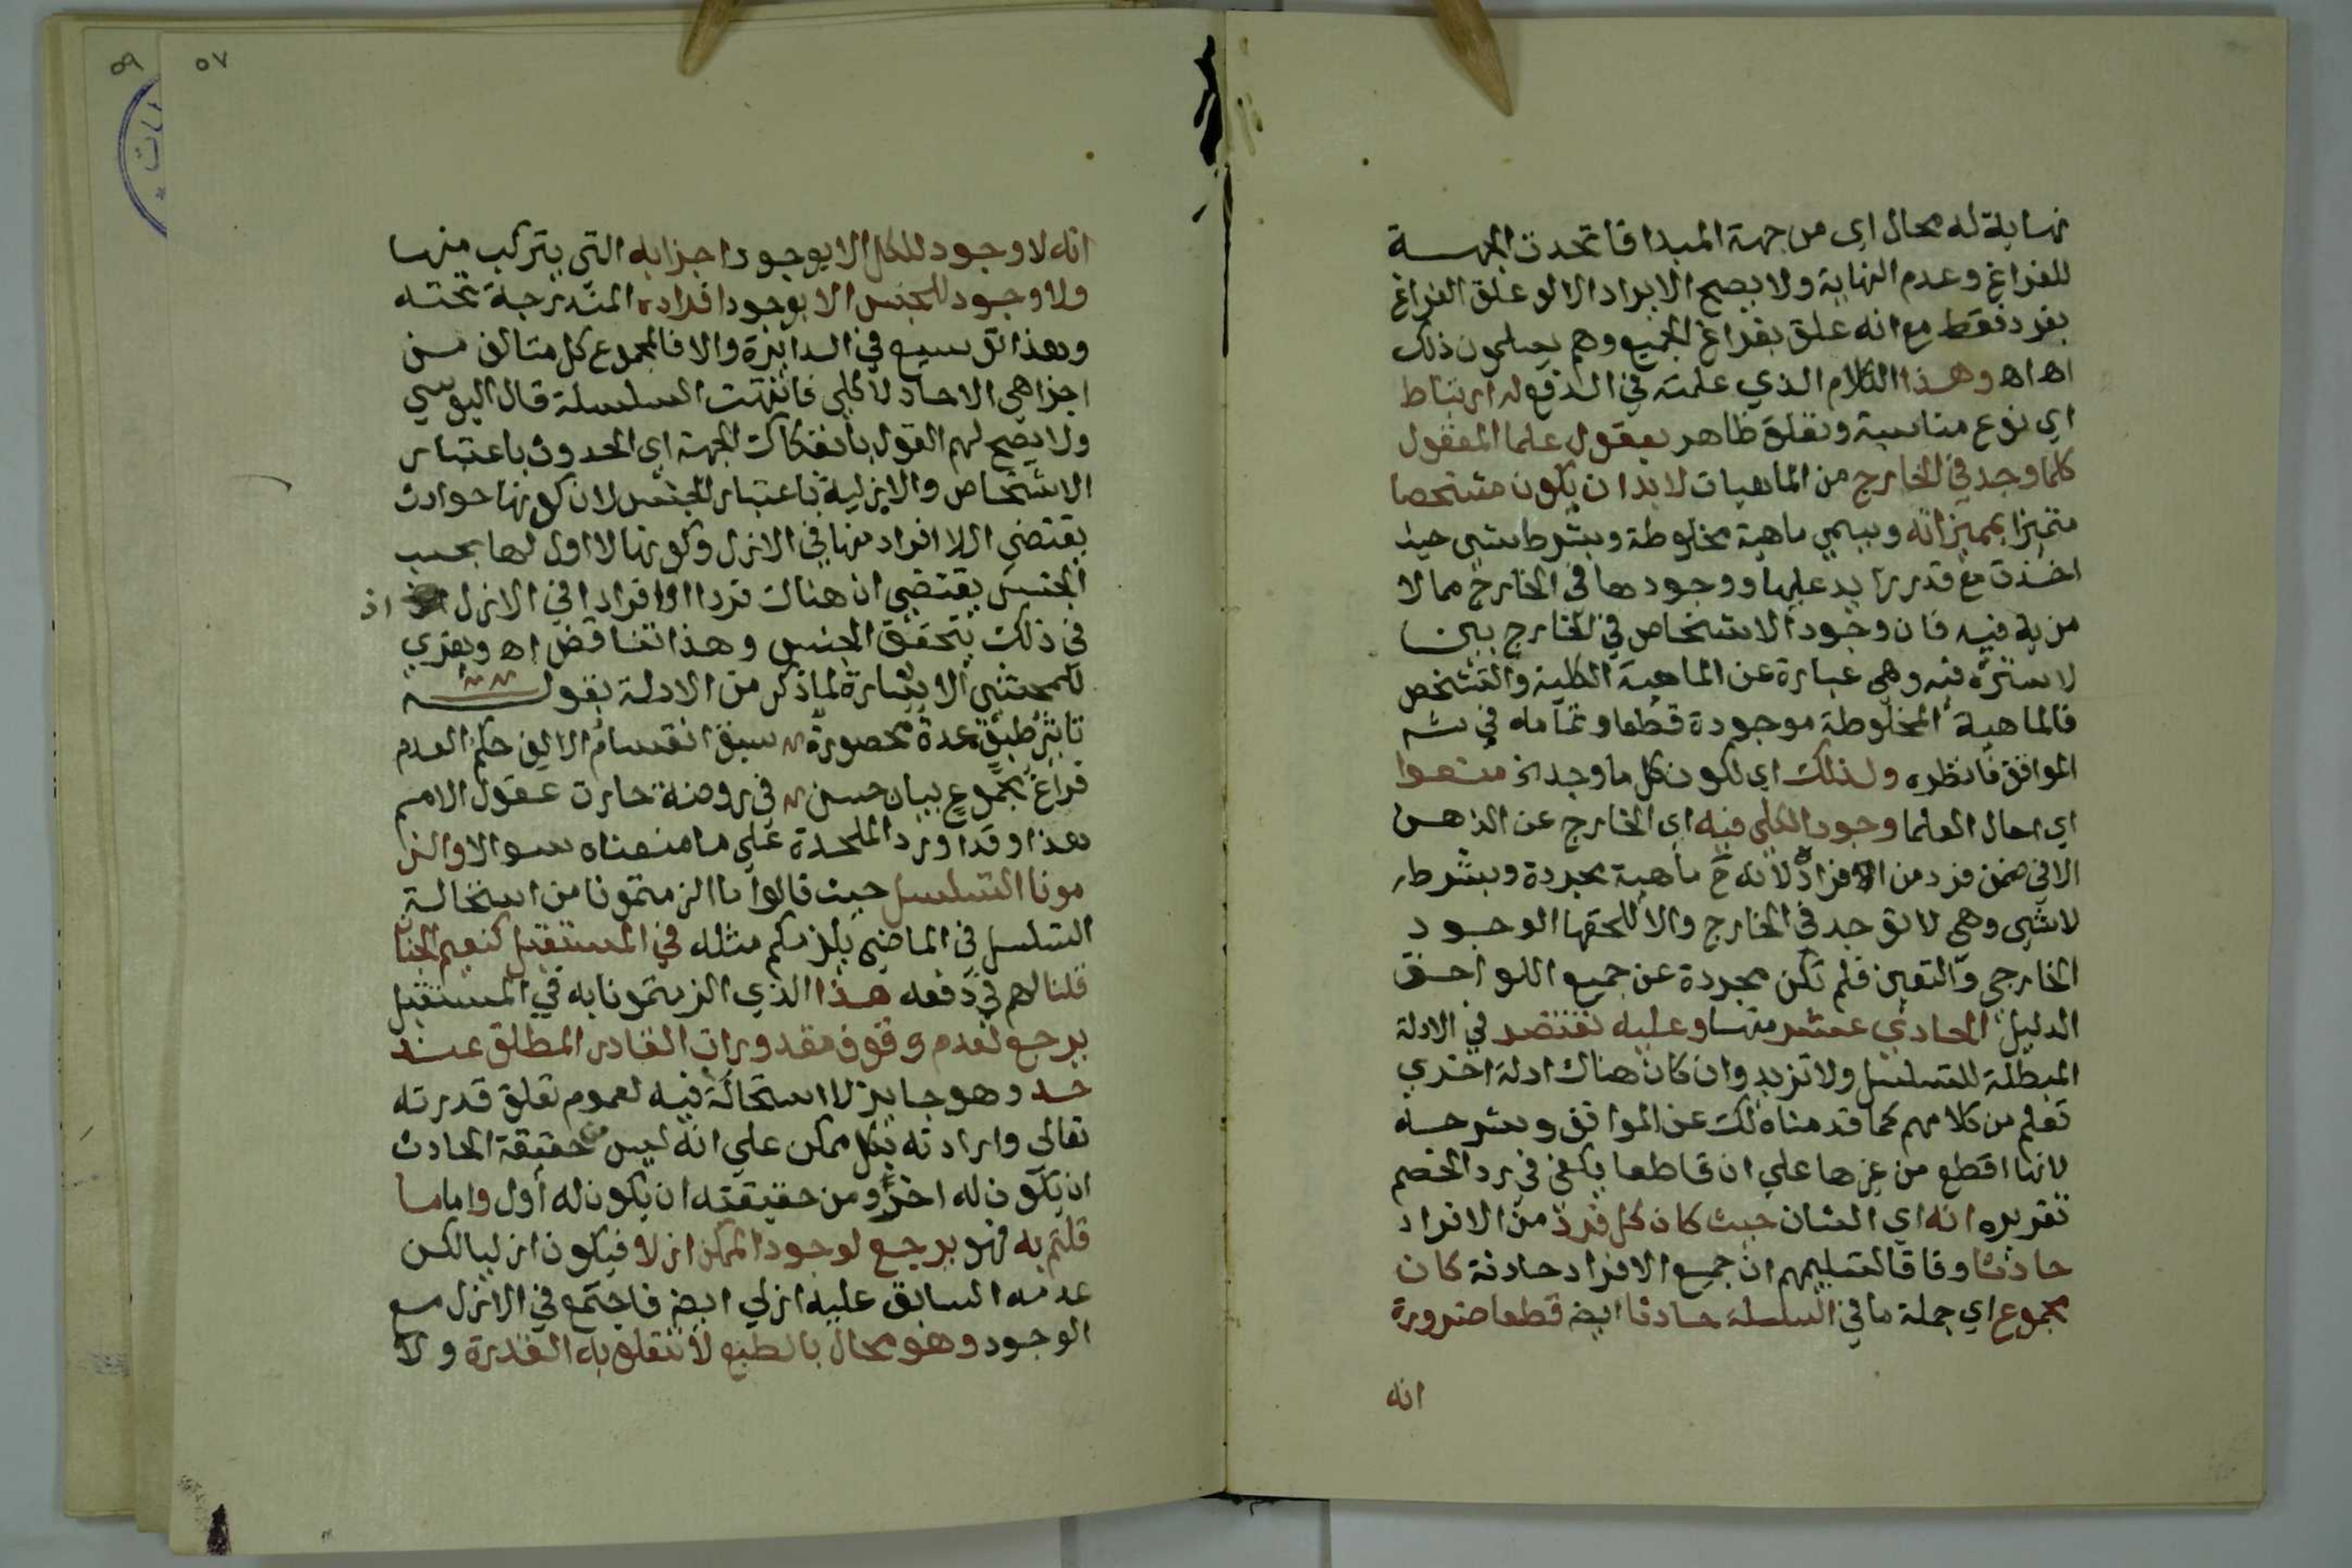 نهاية له محال اي من جهة المبدا فاتحدت الجهة
للفراغ وعدم النهاية ولا يصح الايراد الا لو علق الفراغ
بفرد فقط مع انه علق بفراغ الجميع وهم يسلمون ذلك
اه اه وهذا الكلام الذي علمته في الدفع له ارتباط
اي نوع مناسبة وتعلق ظاهر بقول علما المعقول
كلما وجد في الخارج من الماهيات لا بد ان يكون متشخصا
متميزا بمميزاته ويسمي ماهية مخلوطة وبشرط شي حيث
اخذت مع قدر زايد عليها ووجودها في الخارج مما لا
مزية فيه فان وجود الاشخاص في الخارج بين
لا سترة فيه وهي عبارة عن الماهية الكلية والتشخص
فالماهية المخلوطة موجودة قطعا وتمامه في
الموافق فانظره ولذلك اي لكون كل ما وجد الخ منعوا
اي احال العلما وجود الكلي فيه اي الخارج عن الذهن
الا في ضمن فرد من الافراد لانه ح ماهية مجردة وبشرط
لا شي وهي لا توجد في الخارج والا للحقها الوجود
الخارجي والتعين فلم تكن مجردة عن جميع اللواحق
الدليل الحادي عشر منها وعليه نقتصر في الادلة
المبطلة للتسلسل ولا نزيد وان كان هناك ادلة اخري
تعلم من كلامهم كما قدمناه لك عن الموافق وشرحه
لانها اقطع من غيرها علي ان قاطعا يكفي في رد الخصم
تقريره انه اي الشان حيث كان كل فرد من الافراد
حادثا وفاقا لتسليمهم ان جميع الافراد حادثة كان
مجموع اي جملة ما في السلسلة حادثا ايضا قطعا ضرورة
انه
٥٧
٥٩
انه لا وجود للكل الا بوجود اجزايه التي يتركب منها
ولا وجود للجنس الا بوجود افراده المندرجة تحته
وهذا توسيع في الدايرة والا فالمجموع كل متالف من
اجزا هي الاحاد لا كلي فانتهت السلسلة قال اليوسي
ولا يصح لهم القول بانفكاك الجهة اي الحدوث باعتبار
الاشخاص والازلية باعتبار الجنس لان كونها حوادث
يقتضي ان لا افراد منها في الازل وكونها لا اول لها بحسب
الجنس يقتضي ان هناك فردا او افرادا في الازل اذ
في ذلك يتحقق الجنس وهذا تناقض اه ويعزي
للمحشي الاشارة لما ذكر من الادلة بقوله
تاثير طبق عدة محصورة سبق انقسام الالف حكم العدم
فراغ مجموع ببيان حسن في روضة حارت عقول الامم
هذا وقد اورد الملحدة علي ما منعناه سوالا والز
مونا التسلسل حيث قالوا ما الزمتمونا من استحالة
التسلسل في الماضي يلزمكم مثله في المستقبل كنعيم الجنان
قلنا لهم في دفعه هذا الذي الزمتمونا به في المستقبل
يرجع لعدم وقوف مقدورات القادر المطلق عند
حد وهو جايز لا استحالة فيه لعموم تعلق قدرته
تعالي وارادته بكل ممكن علي انه ليس من حقيقة الحادث
ان يكون له اخر ومن حقيقته ان يكون له أول واما ما
قلتم به فهو يرجع لوجود الممكن ازلا فيكون ازليا لكن
عدمه السابق عليه ازلي ايضا فاجتمع في الازل مع
الوجود وهو محال بالطبع لا تتعلق به القدرة ولا